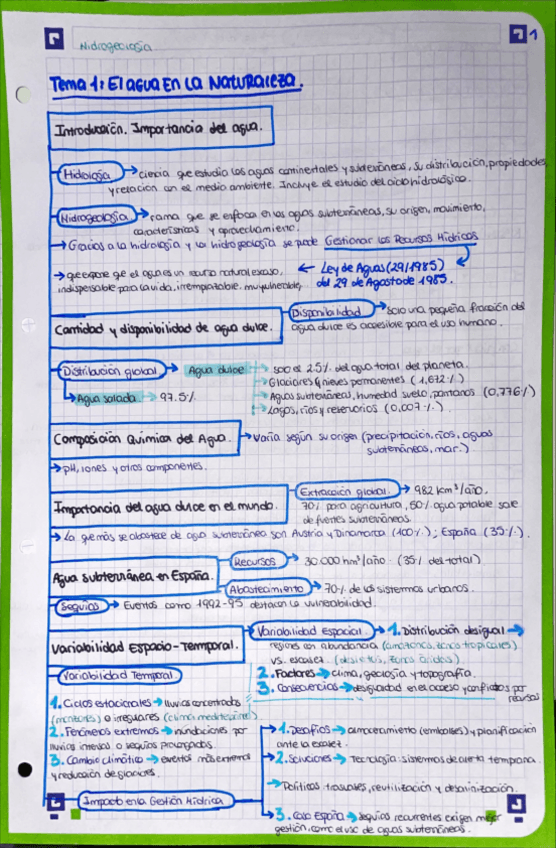 Hidrogeología
1
Tema 1: El agua En La Naturaleza.
Introducción. Importancia del agua.
Hidrología → ciencia que estudia las aguas continentales y subterráneas, su distribución, propiedades
y relación con el medio ambiente. Incluye el estudio del ciclo hidrológico.
Hidrogeología → rama que se enfoca en las aguas subterráneas, su origen, movimiento,
características y aprovechamiento.
→ Gracias a la hidrología y la hidrogeología se puede Gestionar los Recursos Hídricos
→ que expone que el agua es un recurso natural escaso, ← Ley de Aguas (29/1985)
indispensable para la vida, irremplazable, muy vulnerable, del 29 de Agosto de 1985.
Cantidad y disponibilidad de agua dulce. Disponibilidad → solo una pequeña fracción del
agua dulce es accesible para el uso humano.
Distribución global → Agua dulce → solo el 2.5% del agua total del planeta.
→ Glaciares y nieves permanentes (1,672%)
→ Agua salada → 97.5% → Aguas subterráneas, humedad suelo, pantanos (0,776%)
→ Lagos, ríos y reservorios (0,007%).
Composición Química del Agua. → Varía según su origen (precipitación, ríos, aguas
subterráneas, mar.)
→ pH, iones y otros componentes.
Importancia del agua dulce en el mundo. Extracción global → 982 km³/año.
70% para agricultura, 50% agua potable sale
de fuentes subterráneas.
→ La que más se abastece de agua subterránea son Austria y Dinamarca (100%); España (35%).
Agua subterránea en España. Recursos → 30.000 hm³/año. (35% del total)
Abastecimiento → 70% de los sistemas urbanos.
Sequías → Eventos como 1992-95 destacan la vulnerabilidad.
Variabilidad Espacio-Temporal. Variabilidad Espacial → 1. Distribución desigual →
regiones con abundancia (amazonas, zonas tropicales)
vs. escasez (desiertos, zonas áridas).
Variabilidad Temporal 2. Factores → clima, geología y topografía.
3. Consecuencias → desigualdad en el acceso y conflictos por
recursos
1. Ciclos estacionales → lluvias concentradas
(monzones) o irregulares (clima mediterráneo)
2. Fenómenos extremos → inundaciones por
lluvias intensas o sequías prolongadas.
3. Cambio climático → eventos más extremos
y reducción de glaciares.
Impacto en la Gestión Hídrica
→ 1. Desafíos → almacenamiento (embalses) y planificación
ante la escasez.
→ 2. Soluciones → Tecnología: sistemas de alerta temprana.
→ Políticas: trasvases, reutilización y desalinización.
→ 3. Caso España → sequías recurrentes exigen mejor
gestión, como el uso de aguas subterráneas.